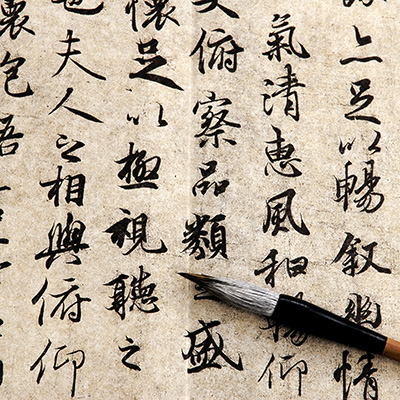 亦足以暢叙幽情
氣清惠風和暢仰
大俯察品類之盛
懷足以極視聽之
也夫人之相與俯仰